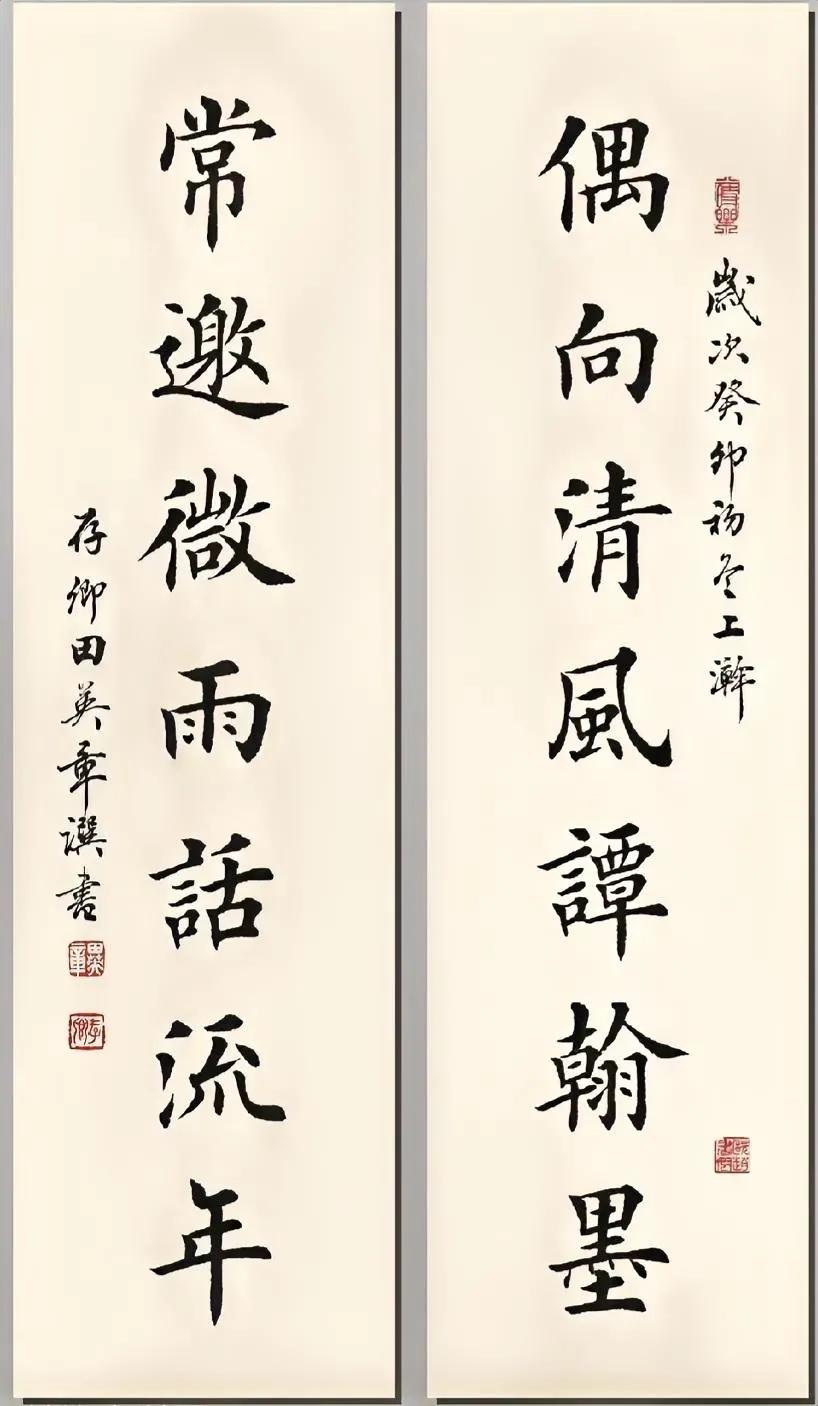 歲次癸卯初冬上澣
偶向清風譚翰墨
常邀微雨話流年
存卿田英章譔書
田英章
存卿